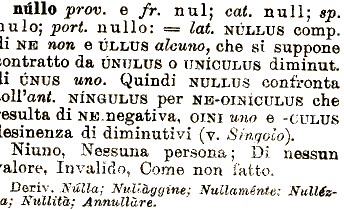 núllo prov. e fr. nul; cat. null; sp.
nulo; port. nullo: = lat. NÚLLUS comp.
di NE non e ÚLLUS alcuno, che si suppone
contratto da ÚNULUS o UNÍCULUS diminut.
di ÚNUS uno. Quindi NULLUS confronta
coll'ant. NÍNGULUS per NE-OINÍCULUS che
resulta di NE negativa, OINI uno e -CULUS
desinenza di diminutivi (v. Singolo).
Niuno, Nessuna persona; Di nessun
valore, Invalido, Come non fatto.
Deriv. Núlla; Nullàggine; Nullaménte; Nulléz-
za; Nullità; Annullàre.